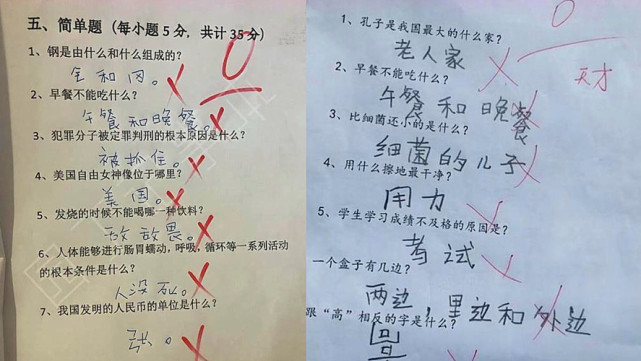 五、简单题（每小题5分，共计35分）
0
1、钢是由什么和什么组成的？
金和冈。
2、早餐不能吃什么？
午餐和晚餐。
3、犯罪分子被定罪判刑的根本原因是什么？
被抓住。
4、美国自由女神像位于哪里？
美国。
5、发烧的时候不能喝哪一种饮料？
敌敌畏。
6、人体能够进行肠胃蠕动，呼吸，循环等一系列活动
的根本条件是什么？
人没死。
7、我国发明的人民币的单位是什么？
张。
0
天才
1、孔子是我国最大的什么家？
老人家
2、早餐不能吃什么？
午餐和晚餐
3、比细菌还小的是什么？
细菌的儿子
4、用什么擦地最干净？
用力
5、学生学习成绩不及格的原因是？
考试
一个盒子有几边？
两边，里边和外边
跟“高”相反的字是什么？